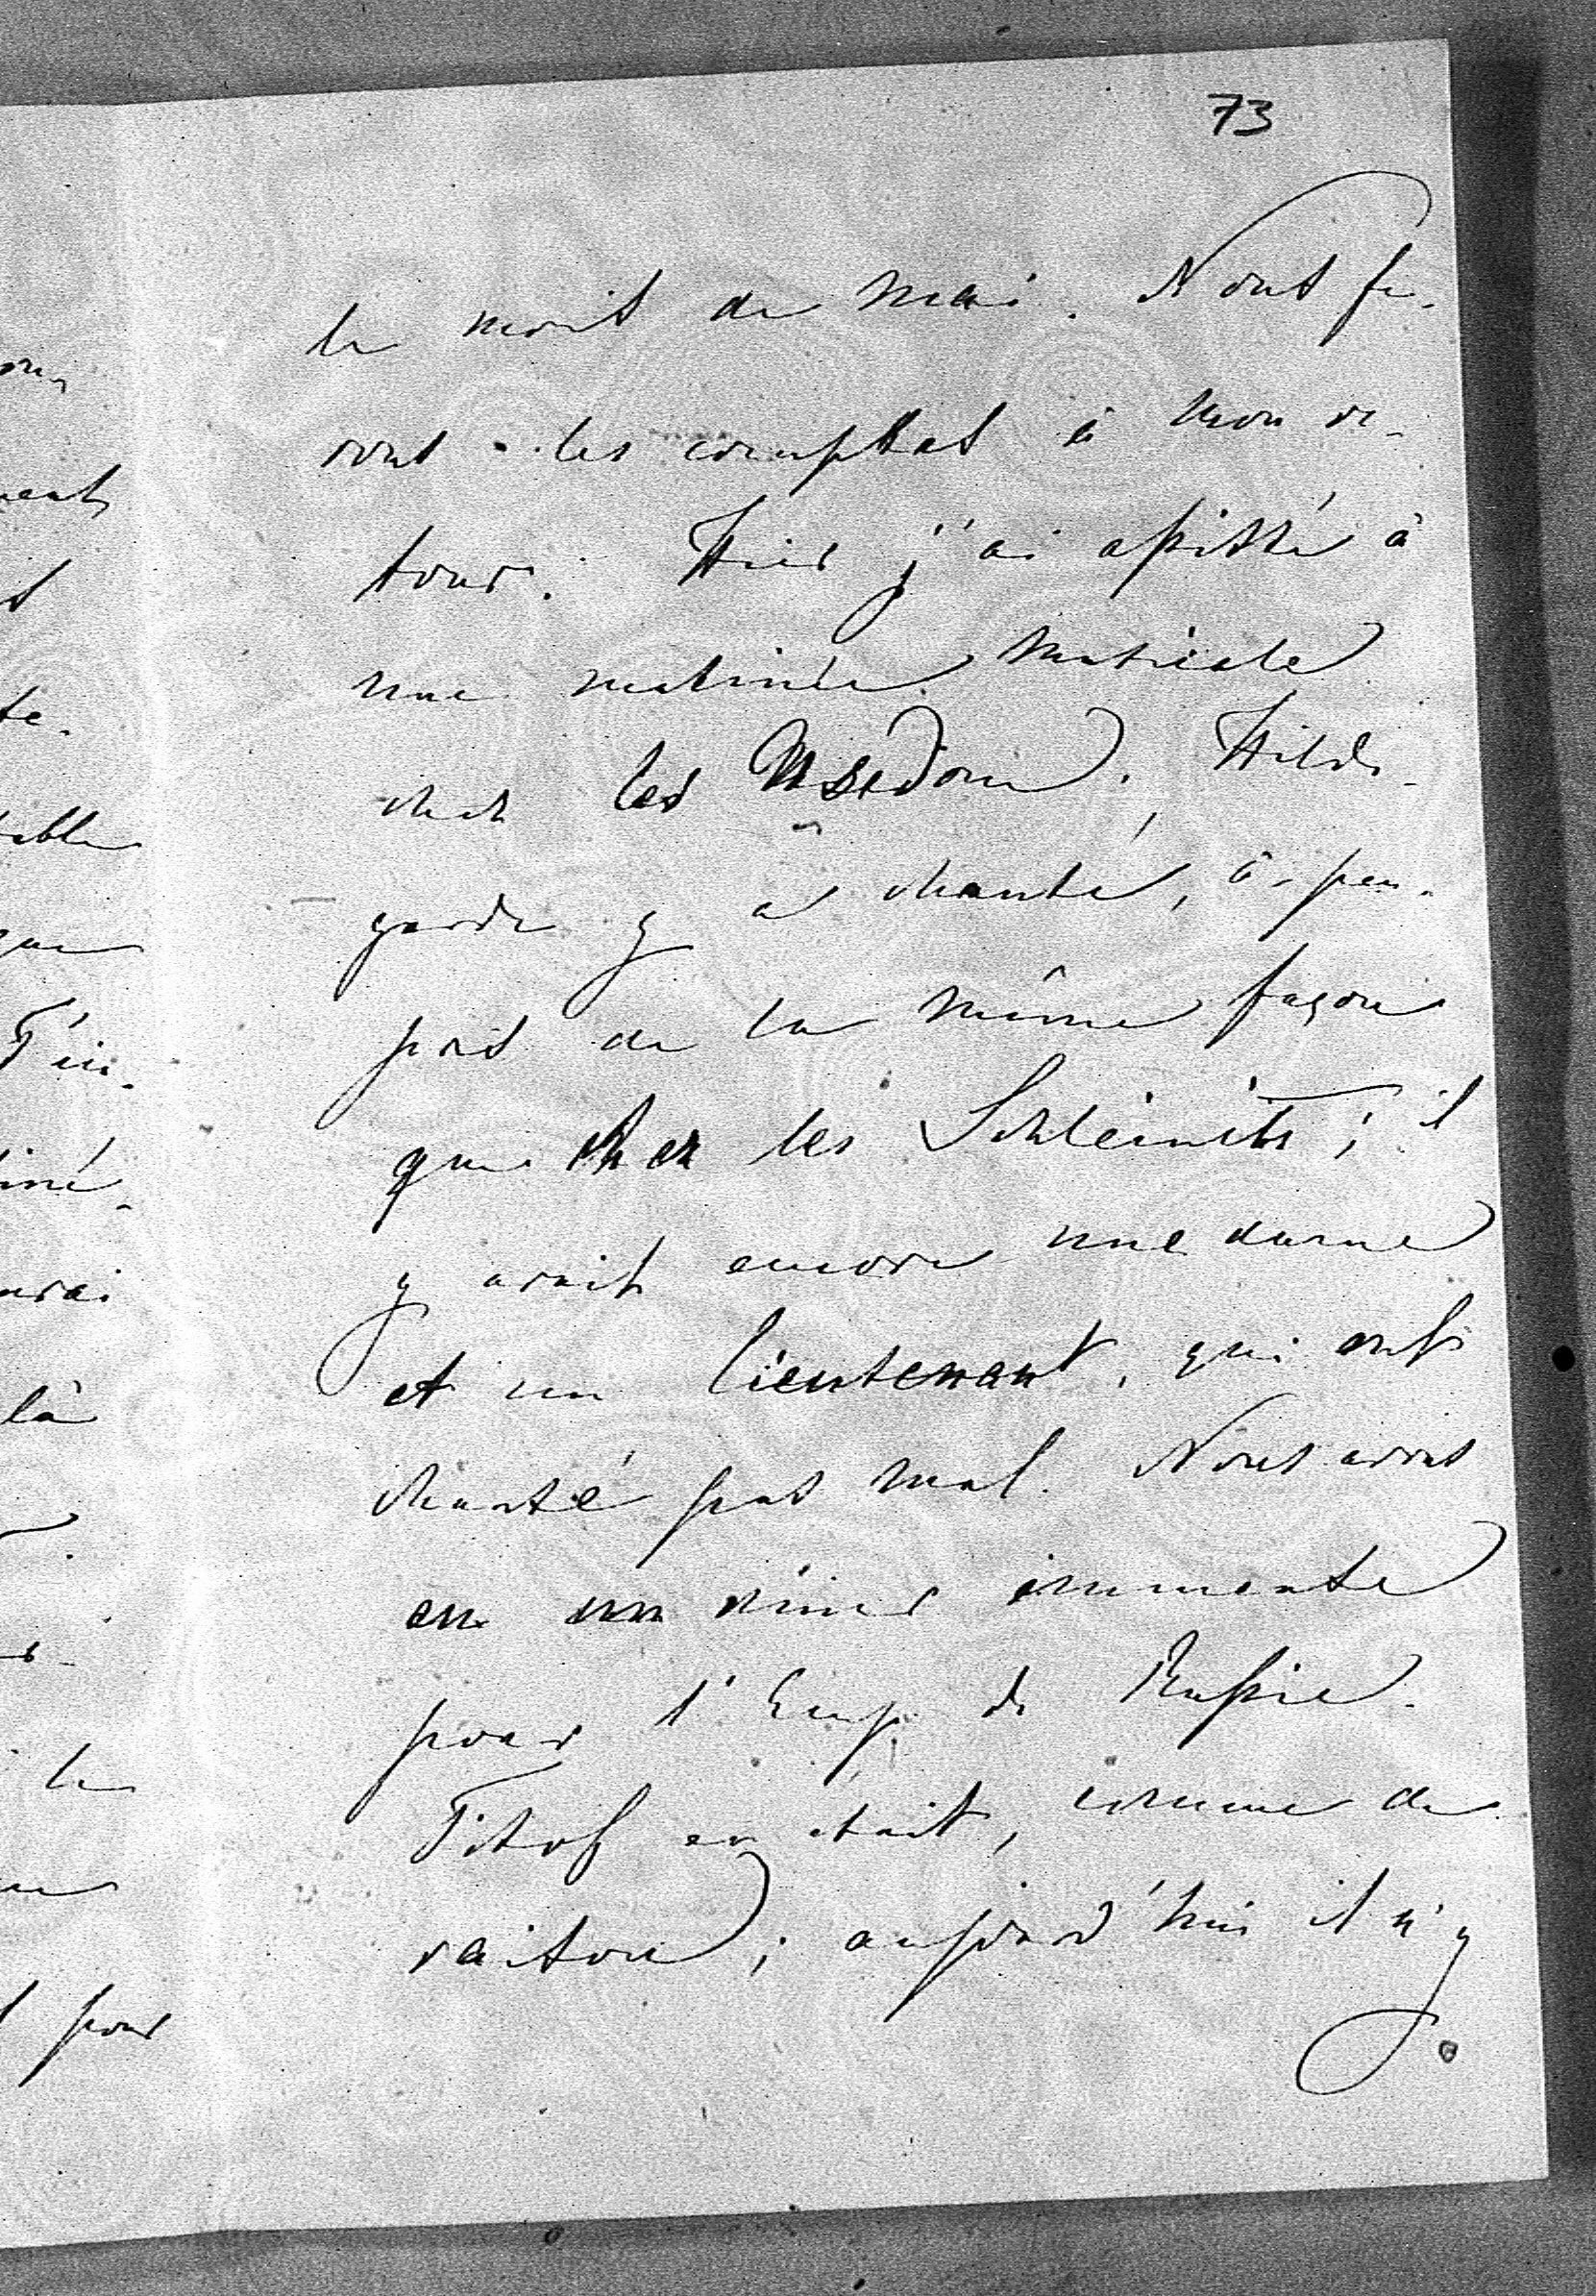 73
le mois de mai. Nous fe-
rons les comptes à mon re-
tour. Hier j'ai assisté à
une matinée musicale
chez les Usedom. Hilde-
garde y a chanté, à-peu-
près de la même façon
que chez les Schleinitz; il
y avait encore une dame
et un lieutenant, qui ont
chanté pas mal. Nous avons
eu un dîner immense
pour l'Emp. de Russie.
Titof en était, comme de
raison; aujourd'hui il n'y